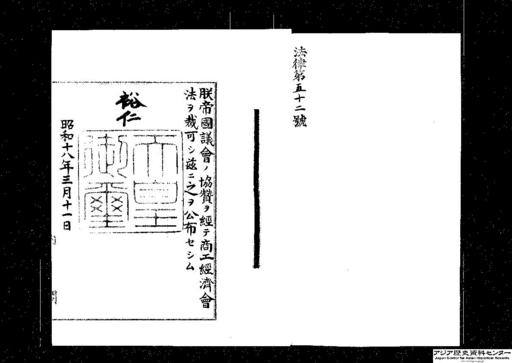 法律第五十二號
朕帝國議會ノ協贊ヲ經テ商工經濟會
法ヲ裁可シ茲ニ之ヲ公布セシム
裕仁
天皇
御璽
昭和十八年三月十一日
アジア歴史資料センター
Japan Center for Asian Historical Records